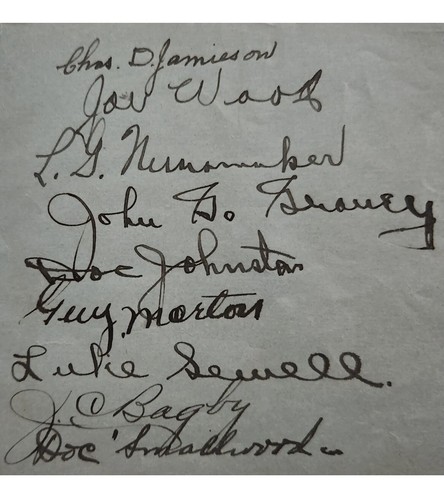 Chas. D. Jamieson
Joe Wood
L. G. Nunamaker
John G. Graney
Doc Johnston
Guy Morton
Luke Sewell.
J. C. Bagby
"Doc" Smallwood